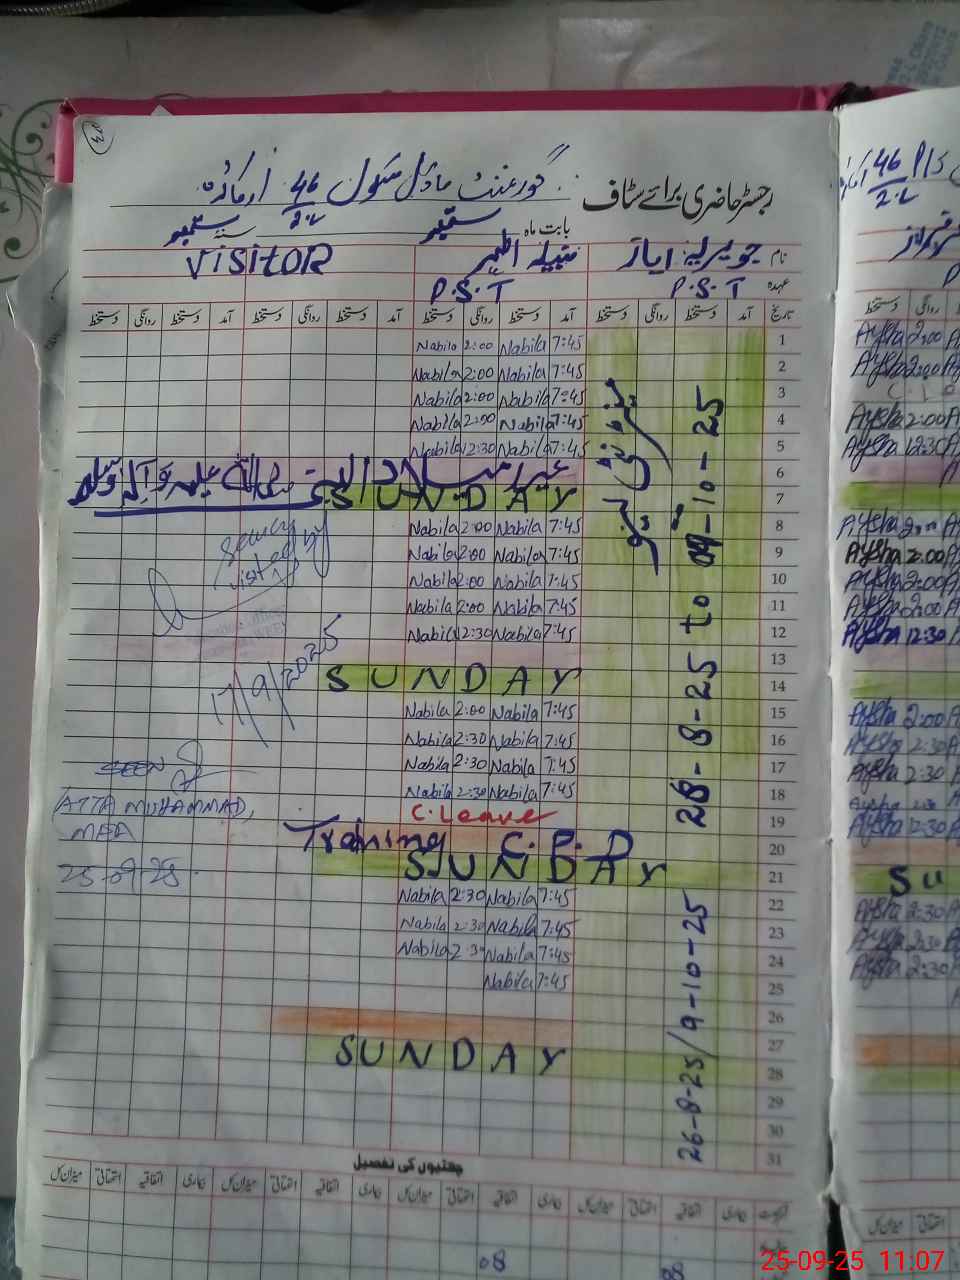 رجسٹر حاضری برائے سٹاف گورنمنٹ ماڈل سکول 46/2.L
بابت ماہ ستمبر سنہ ستمبر
نام جویریہ ایاز نبیلہ اظہر VISITOR
عہدہ P.S.T P.S.T
تاریخ آمد دستخط روانگی دستخط آمد دستخط روانگی دستخط آمد دستخط روانگی دستخط آمد دستخط روانگی دستخط
1 7:45 Nabila 2:00 Nabila
2 7:45 Nabila 2:00 Nabila
3 7:45 Nabila 2:00 Nabila
4 7:45 Nabila 2:00 Nabila
5 7:45 Nabila 12:30 Nabila
6 عید میلاد النبی صلی اللہ علیہ وآلہ وسلم
7 SUNDAY
8 7:45 Nabila 2:00 Nabila
9 7:45 Nabila 2:00 Nabila
10 7:45 Nabila 2:00 Nabila
11 7:45 Nabila 2:00 Nabila
12 7:45 Nabila 12:30 Nabila
13
14 SUNDAY
15 7:45 Nabila 2:00 Nabila
16 7:45 Nabila 2:30 Nabila
17 7:45 Nabila 2:30 Nabila
18 7:45 Nabila 2:30 Nabila
19 C.Leave
20 Training C.P.D
21 SUNDAY
22 7:45 Nabila 2:30 Nabila
23 7:45 Nabila 2:30 Nabila
24 7:45 Nabila 2:30 Nabila
25 7:45 Nabila
26
27
28 SUNDAY
29
30
31
28-8-25 to 09-10-25
26-8-25/9-10-25
visited by
17/9/2025
SEEN
ATTA MUHAMMAD,
MEA
25-09-25.
چھٹیوں کی تفصیل
بیماری اتفاقیہ استحقاقی میزان کل بیماری اتفاقیہ استحقاقی میزان کل بیماری اتفاقیہ استحقاقی میزان کل بیماری اتفاقیہ استحقاقی میزان کل
08
46/2.L
دستخط روانگی دستخط
Aysha 2:00
Aysha 2:00
Aysha 2:00
Aysha 12:30
Aysha 2:00
Aysha 2:00
Aysha 2:00
Aysha 2:00
Aysha 12:30
Aysha 2:00
Aysha 2:30
Aysha 2:30
Aysha 12:30
SU
Aysha 2:30
Aysha 2:30
Aysha 2:30
میزان کل استحقاقی
25-09-25 11:07